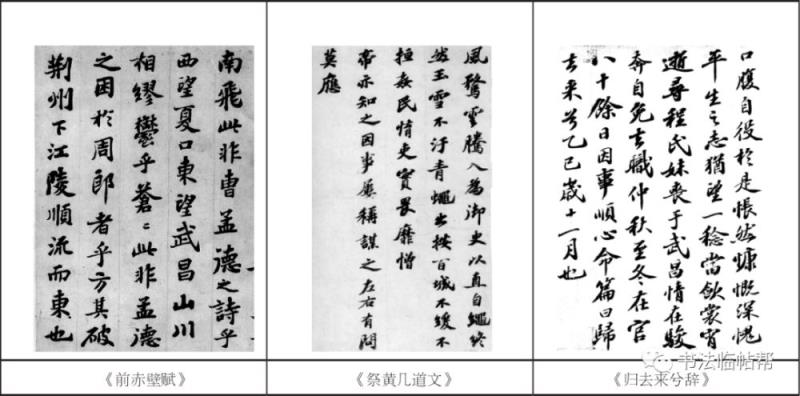 南飛此非曹孟德之詩乎
西望夏口東望武昌山川
相繆鬱乎蒼〻此非孟德
之困於周郎者乎方其破
荆州下江陵順流而東也
風騖雲騰入爲御史以直自繩終
然玉雪不汙青蠅出按百城不緩不
拒姦民情吏實畏靡憎
帝亦知之因事屢稱謀之左右有問
莫應
口腹自役於是悵然慷慨深愧
平生之志猶望一稔當斂裳宵
逝尋程氏妹喪于武昌情在駿
奔自免去職仲秋至冬在官
八十餘日因事順心命篇曰歸
去来兮乙巳歳十一月也
《前赤壁赋》
《祭黄几道文》
《归去来兮辞》
书法临帖帮